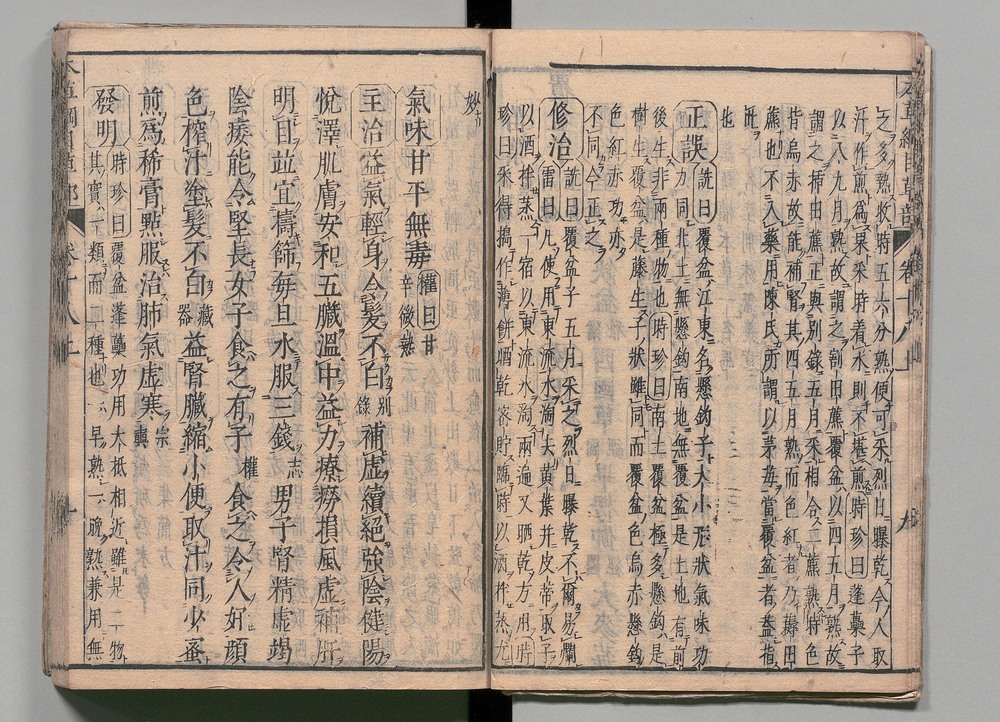 之多熟收時五六分熟便可采烈日曝乾今人取
汁作煎爲果采時着水則不堪煎時珍曰蓬藟子
以八九月熟故謂之割田藨覆盆以四五月熟故
謂之揷田藨正與別錄五月采相合二藨熟時色
皆烏赤故能補腎其四五月熟而色紅者乃耨田
藨也不入藥用陳氏所謂以茅莓當覆盆者蓋指
此也
正誤詵曰覆盆江東名懸鉤子大小形狀氣味功
力同北土無懸鉤南地無覆盆是土地有前
後生非兩種物也時珍曰南土覆盆極多懸鉤是
樹生覆盆是藤生子狀雖同而覆盆色烏赤懸鉤
色紅赤功亦
不同今正之
修治詵曰覆盆子五月采之烈日曝乾不爾易爛
雷曰凡使用東流水淘去黃葉幷皮蒂取子
以酒拌蒸一宿以東流水淘兩遍又晒乾方用時
珍曰采得搗作薄餠晒乾密貯臨時以酒拌蒸尤
妙
氣味甘平無毒權曰甘辛微熱
主治益氣輕身令髮不白別錄補虛續絕強陰健陽
悅澤肌膚安和五臟溫中益力療癆損風虛補肝
明目並宜擣篩每旦水服三錢志男子腎精虛竭
陰痿能令堅長女子食之有子權食之令人好顏
色榨汁塗髮不白藏器益腎臟縮小便取汁同少蜜
煎爲稀膏點服治肺氣虛寒宗奭
發明時珍曰覆盆蓬藟功用大抵相近雖是二物
其實一類而二種也一早熟一晚熟兼用無